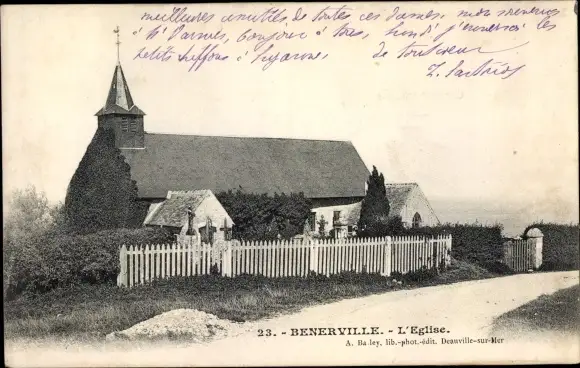 meilleures amitiés de toutes ces dames, mon
à Mr Parnel, bonjour à tous, lundi j'enverrai les
petits chiffons à Suzanne, de tout cœur
23. - BENERVILLE. - L'Eglise.
A. Bailey, lib.-phot.-édit. Deauville-sur-Mer